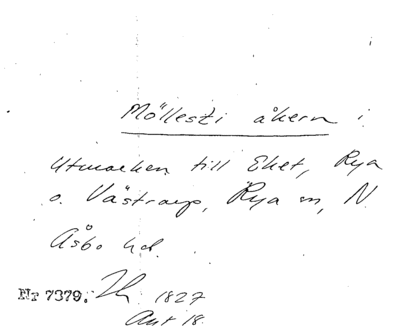 Mölleszi åkern i
Utmarken till Eket, Rya
o. Västraup, Rya sn, N.
Åsbo hd.
Nr 7379. 1827
Akt 18.